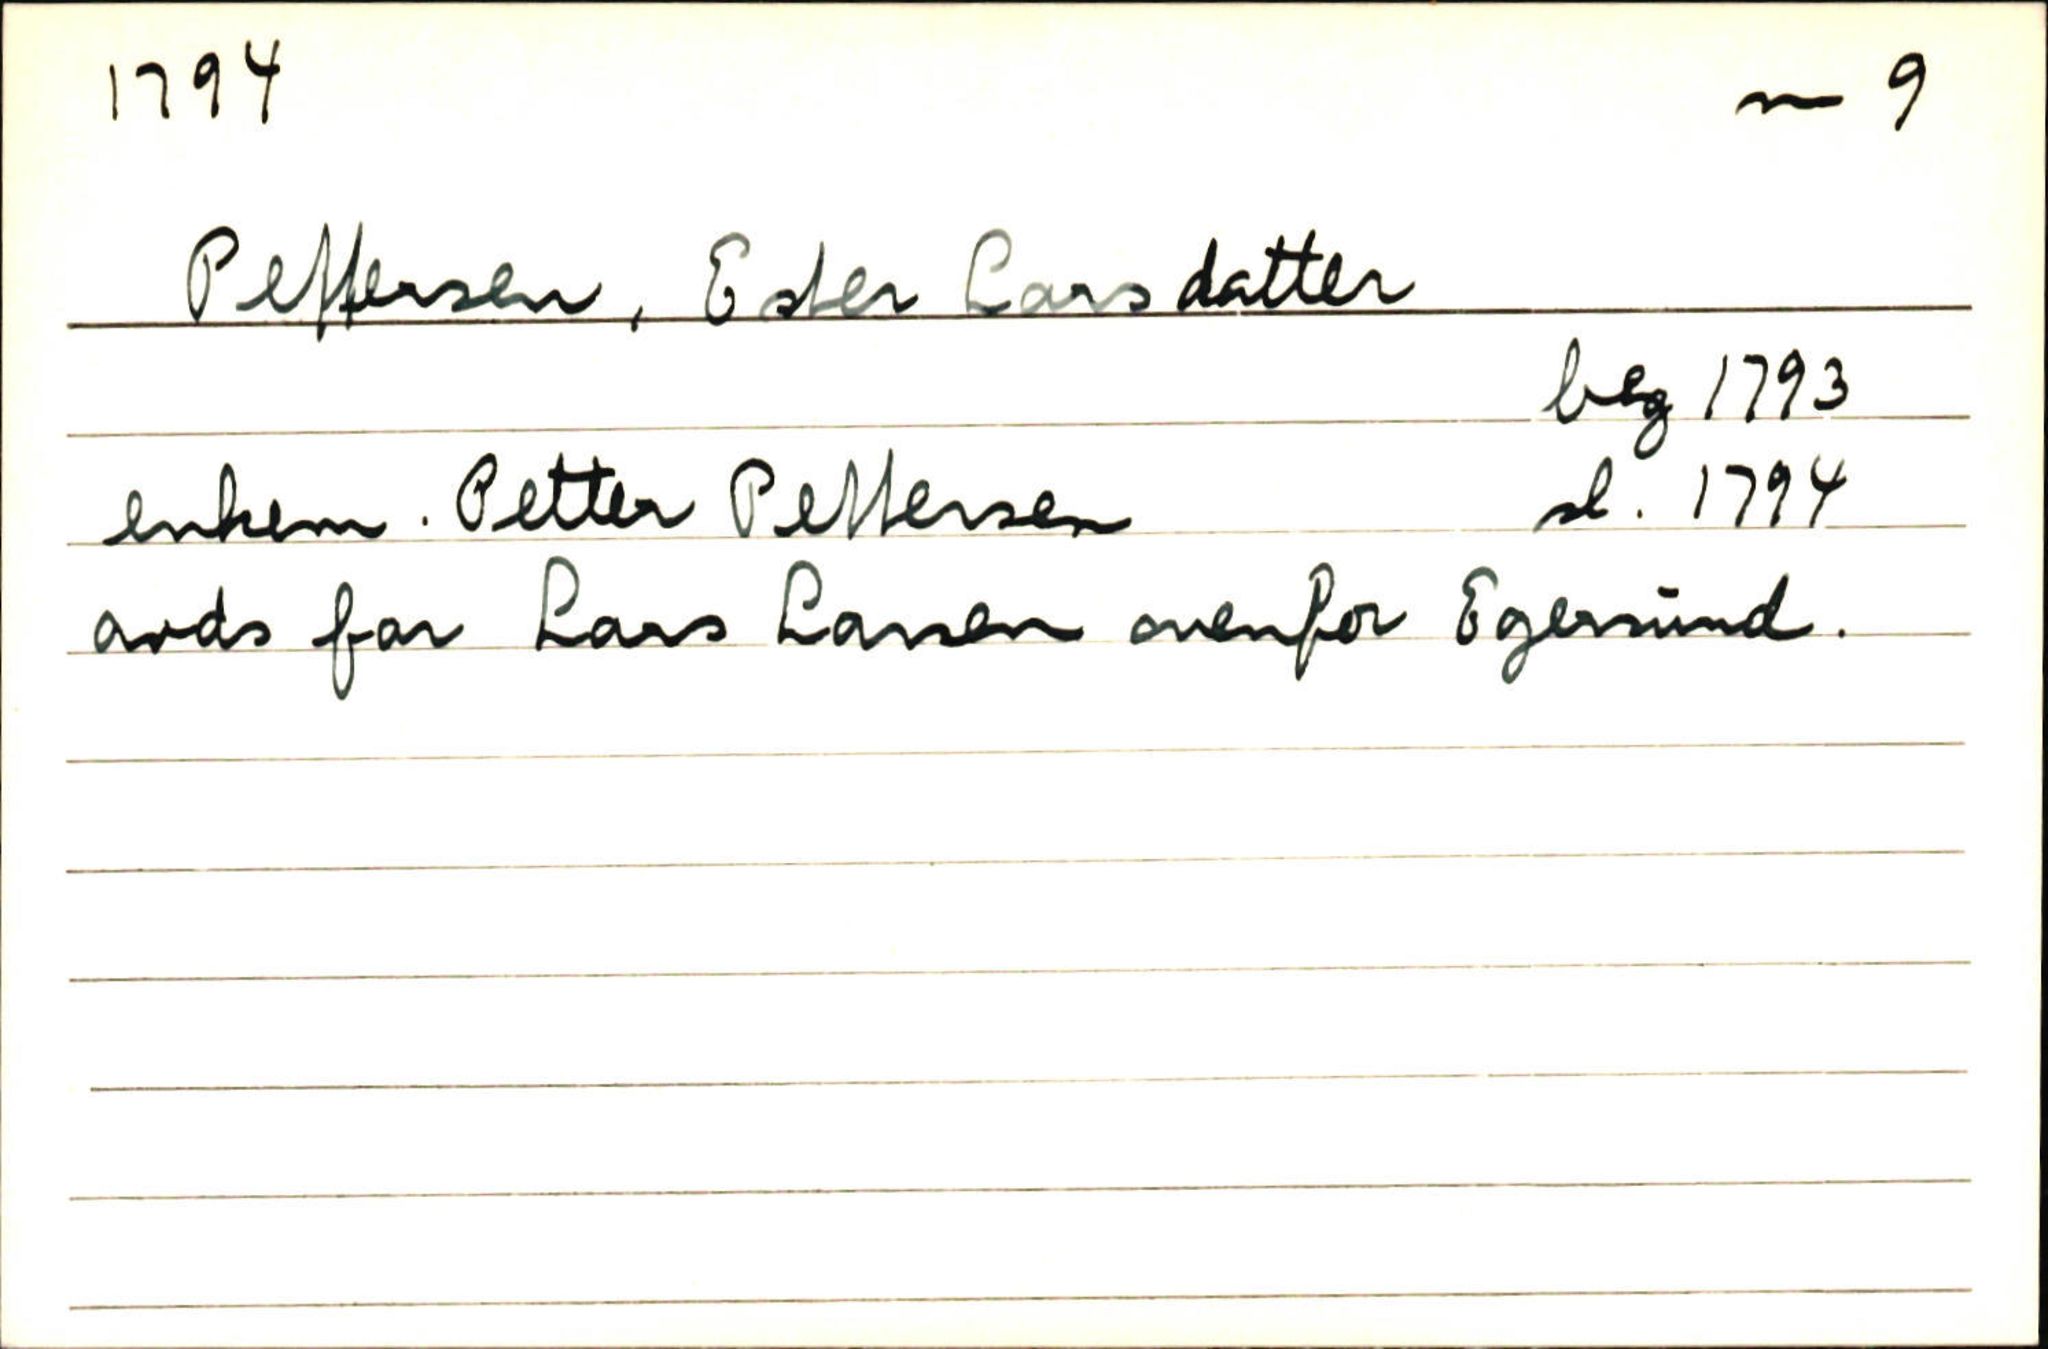 1794 n 9
Pettersen, Ester Larsdatter
beg 1793
enkem. Petter Pettersen sl. 1794
avds far Lars Larsen ovenfor Egersund.